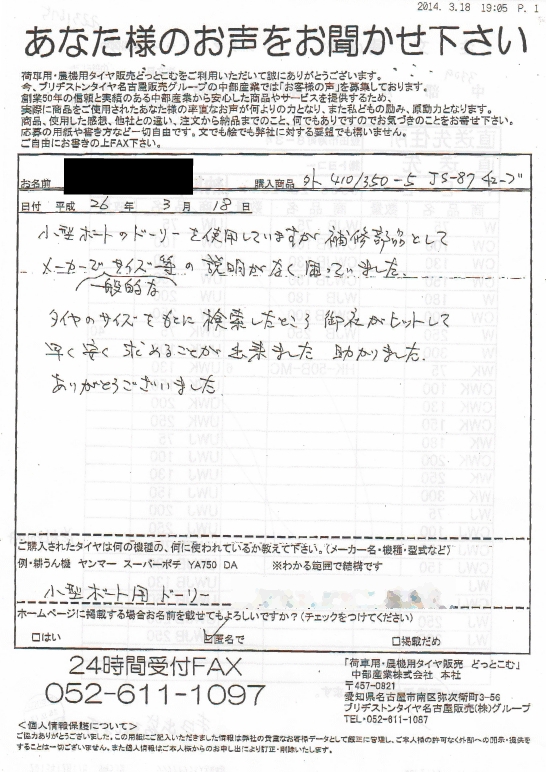 2014. 3.18 19:05 P. 1
あなた様のお声をお聞かせ下さい
荷車用・農機用タイヤ販売どっとこむをご利用いただいて誠にありがとうございます。
今、ブリヂストンタイヤ名古屋販売グループの中部産業では「お客様の声」を募集しております。
創業50年の信頼と実績のある中部産業から安心した商品やサービスを提供するため、
実際に商品をご使用されたあなた様の率直なお声が何よりの力となり、また私どもの励み、原動力となります。
商品、使用した感想、他社との違い、注文から納品までのこと、何でもありですのでお気づきのことをお寄せ下さい。
応募の用紙や書き方など一切自由です。文でも絵でも弊社に対する要望でも構いません。
ご自由にお書きの上FAX下さい。
お名前 購入商品 タト 410/350-5 JS-87 チューブ
日付 平成 26 年 3 月 18 日
小型ボートのドーリーを使用していますが補修部品として
メーカーでサイズ等の説明がなく困っていました。
一般的な
タイヤのサイズをもとに検索したところ御社がヒットして
早く安く求めることが出来ました 助かりました.
ありがとうございました.
ご購入されたタイヤは何の機種の、何に使われているか教えて下さい。(メーカー名・機種・型式など)
例・耕うん機 ヤンマー スーパーポチ YA750 DA ※わかる範囲で結構です
小型ボート用 ドーリー
ホームページに掲載する場合お名前を載せてもよろしいですか?(チェックをつけてください)
□はい ☑匿名で □掲載だめ
24時間受付FAX
052-611-1097
「荷車用・農機用タイヤ販売 どっとこむ」
中部産業株式会社 本社
〒457-0821
愛知県名古屋市南区弥次衛町3-56
ブリヂストンタイヤ名古屋販売(株)グループ
TEL・052-611-0768
<個人情報保護について>
ご協力ありがとうございました。この用紙にご記入いただきました情報は弊社の貴重なお客様データとして厳正に管理し、ご本人様の許可なく外部への開示・提供を
することは一切ございません。また個人情報はご本人様からのお申し出により訂正・削除いたします。